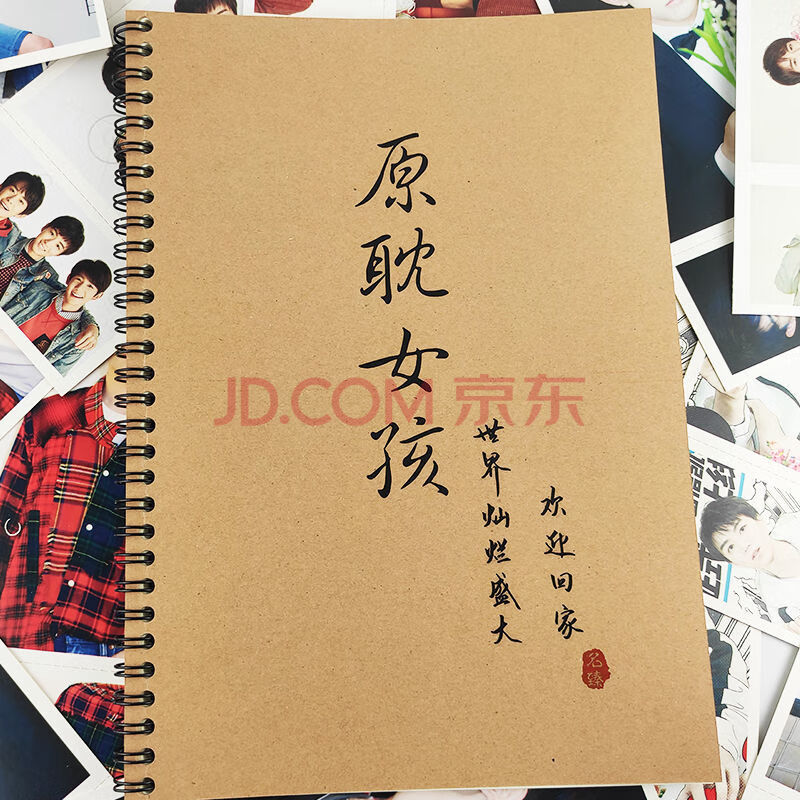 原耽女孩
世界灿烂盛大
欢迎回家
名臻
JD.COM 京东